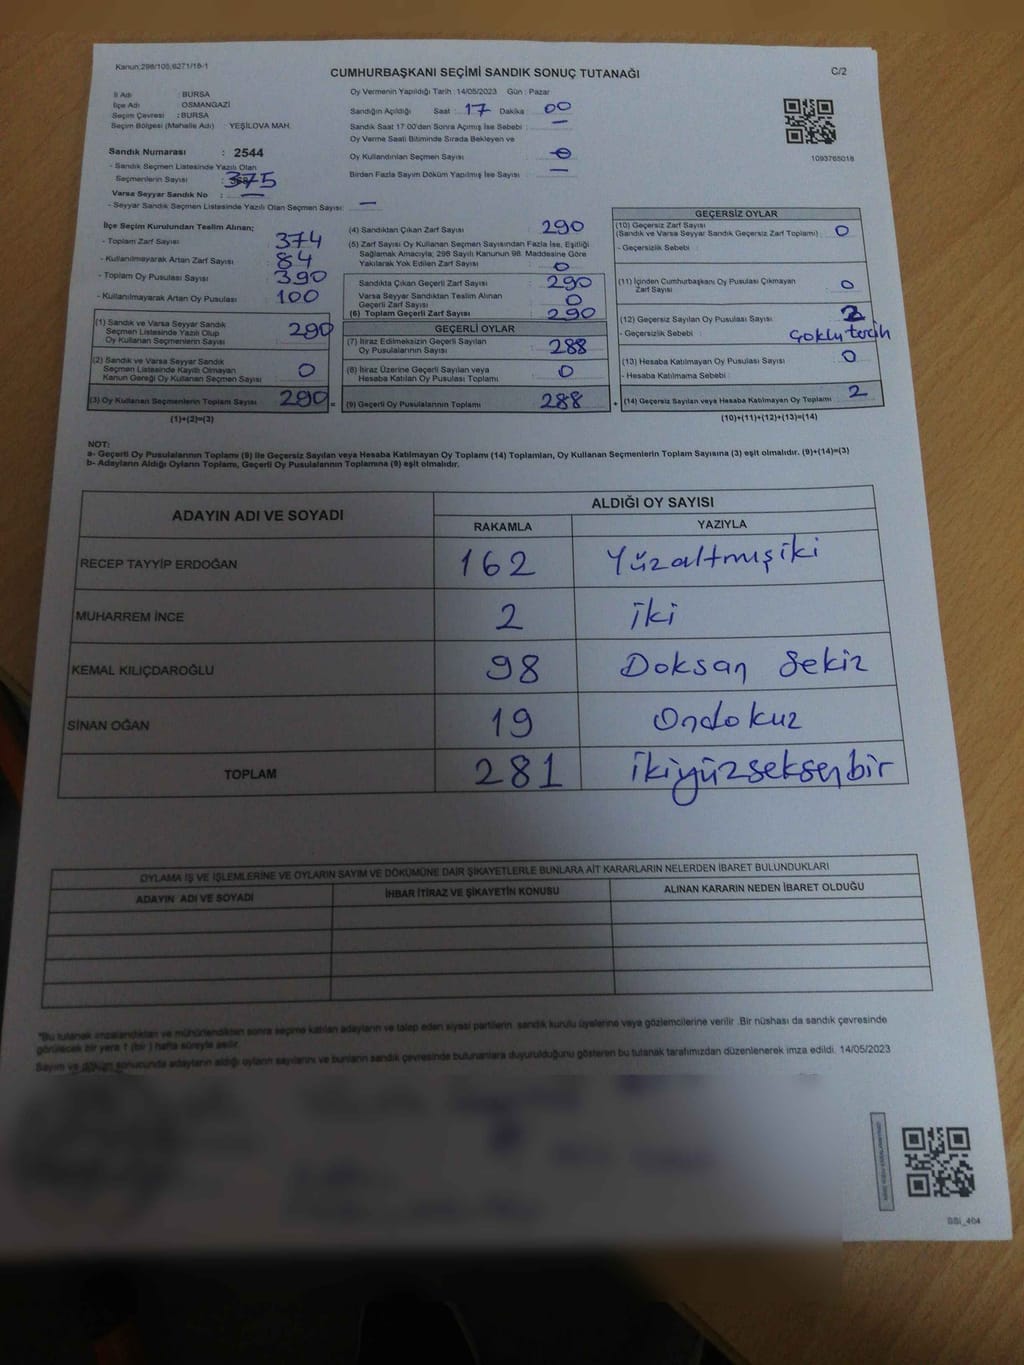 Kanun;298/105,6271/18-1
CUMHURBAŞKANI SEÇİMİ SANDIK SONUÇ TUTANAĞI
C/2
İl Adı : BURSA
İlçe Adı : OSMANGAZİ
Seçim Çevresi : BURSA
Seçim Bölgesi (Mahalle Adı) : YEŞİLOVA MAH.
Sandık Numarası : 2544
- Sandık Seçmen Listesinde Yazılı Olan
Seçmenlerin Sayısı : 375
Varsa Seyyar Sandık No : —
- Seyyar Sandık Seçmen Listesinde Yazılı Olan Seçmen Sayısı: —
Oy Vermenin Yapıldığı Tarih : 14/05/2023 Gün : Pazar
Sandığın Açıldığı Saat : 17 Dakika : 00
Sandık Saat 17:00'den Sonra Açımış İse Sebebi : —
Oy Verme Saati Bitiminde Sırada Bekleyen ve
Oy Kullandırılan Seçmen Sayısı : 0
Birden Fazla Sayım Döküm Yapılmış İse Sayısı : —
1093765018
İlçe Seçim Kurulundan Teslim Alınan;
- Toplam Zarf Sayısı : 374
- Kullanılmayarak Artan Zarf Sayısı : 84
- Toplam Oy Pusulası Sayısı : 390
- Kullanılmayarak Artan Oy Pusulası : 100
(1) Sandık ve Varsa Seyyar Sandık
Seçmen Listesinde Yazılı Olup
Oy Kullanan Seçmenlerin Sayısı : 290
(2) Sandık ve Varsa Seyyar Sandık
Seçmen Listesinde Kayıtlı Olmayan
Kanun Gereği Oy Kullanan Seçmen Sayısı : 0
(3) Oy Kullanan Seçmenlerin Toplam Sayısı : 290 =
(1)+(2)=(3)
(4) Sandıktan Çıkan Zarf Sayısı : 290
(5) Zarf Sayısı Oy Kullanan Seçmen Sayısından Fazla İse, Eşitliği
Sağlamak Amacıyla; 298 Sayılı Kanunun 98. Maddesine Göre
Yakılarak Yok Edilen Zarf Sayısı : 0
Sandıkta Çıkan Geçerli Zarf Sayısı : 290
Varsa Seyyar Sandıktan Teslim Alınan
Geçerli Zarf Sayısı : 0
(6) Toplam Geçerli Zarf Sayısı : 290
GEÇERLİ OYLAR
(7) İtiraz Edilmeksizin Geçerli Sayılan
Oy Pusulalarının Sayısı : 288
(8) İtiraz Üzerine Geçerli Sayılan veya
Hesaba Katılan Oy Pusulası Toplamı : 0
(9) Geçerli Oy Pusulalarının Toplamı : 288 +
GEÇERSİZ OYLAR
(10) Geçersiz Zarf Sayısı
(Sandık ve Varsa Seyyar Sandık Geçersiz Zarf Toplamı) : 0
- Geçersizlik Sebebi :
(11) İçinden Cumhurbaşkanı Oy Pusulası Çıkmayan
Zarf Sayısı : 0
(12) Geçersiz Sayılan Oy Pusulası Sayısı : 2
- Geçersizlik Sebebi : Çoklu tercih
(13) Hesaba Katılmayan Oy Pusulası Sayısı : 0
- Hesaba Katılmama Sebebi :
(14) Geçersiz Sayılan veya Hesaba Katılmayan Oy Toplamı : 2
(10)+(11)+(12)+(13)=(14)
NOT:
a- Geçerli Oy Pusulalarının Toplamı (9) ile Geçersiz Sayılan veya Hesaba Katılmayan Oy Toplamı (14) Toplamları, Oy Kullanan Seçmenlerin Toplam Sayısına (3) eşit olmalıdır. (9)+(14)=(3)
b- Adayların Aldığı Oyların Toplamı, Geçerli Oy Pusulalarının Toplamına (9) eşit olmalıdır.
ADAYIN ADI VE SOYADI
ALDIĞI OY SAYISI
RAKAMLA YAZIYLA
RECEP TAYYİP ERDOĞAN 162 Yüzaltmışiki
MUHARREM İNCE 2 iki
KEMAL KILIÇDAROĞLU 98 Doksan Sekiz
SİNAN OĞAN 19 Ondokuz
TOPLAM 281 ikiyüzseksenbir
OYLAMA İŞ VE İŞLEMLERİNE VE OYLARIN SAYIM VE DÖKÜMÜNE DAİR ŞİKAYETLERLE BUNLARA AİT KARARLARIN NELERDEN İBARET BULUNDUKLARI
ADAYIN ADI VE SOYADI İHBAR İTİRAZ VE ŞİKAYETİN KONUSU ALINAN KARARIN NEDEN İBARET OLDUĞU
*Bu tutanak imzalandıktan ve mühürlendikten sonra seçime katılan adayların ve talep eden siyasi partilerin, sandık kurulu üyelerine veya gözlemcilerine verilir .Bir nüshası da sandık çevresinde
görülecek bir yere 1 (bir ) hafta süreyle asılır.
Sayım ve döküm sonucunda adayların aldığı oyların sayılarını ve bunların sandık çevresinde bulunanlara duyurulduğunu gösteren bu tutanak tarafımızdan düzenlenerek imza edildi. 14/05/2023
SSİ_404